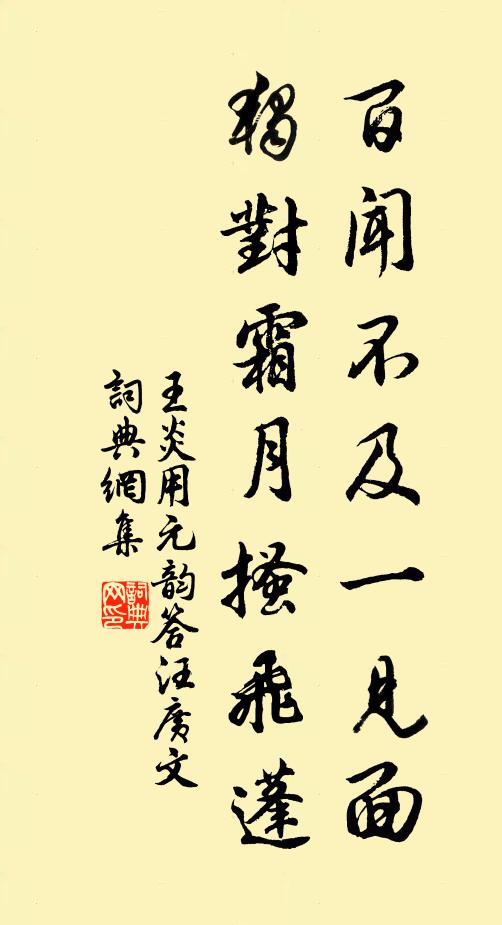 百聞不及一見面
獨對霜月搔飛蓬
王炎用元韵答汪廣文
詞典網集
詞典网印